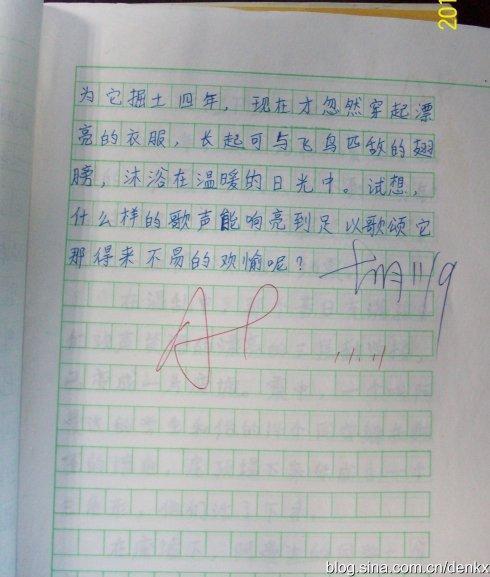 201
为它掘土四年，现在才忽然穿起漂
亮的衣服，长起可与飞鸟匹敌的翅
膀，沐浴在温暖的日光中。试想，
什么样的歌声能响亮到足以歌颂它
那得来不易的欢愉呢？
11/9
blog.sina.com.cn/denkx